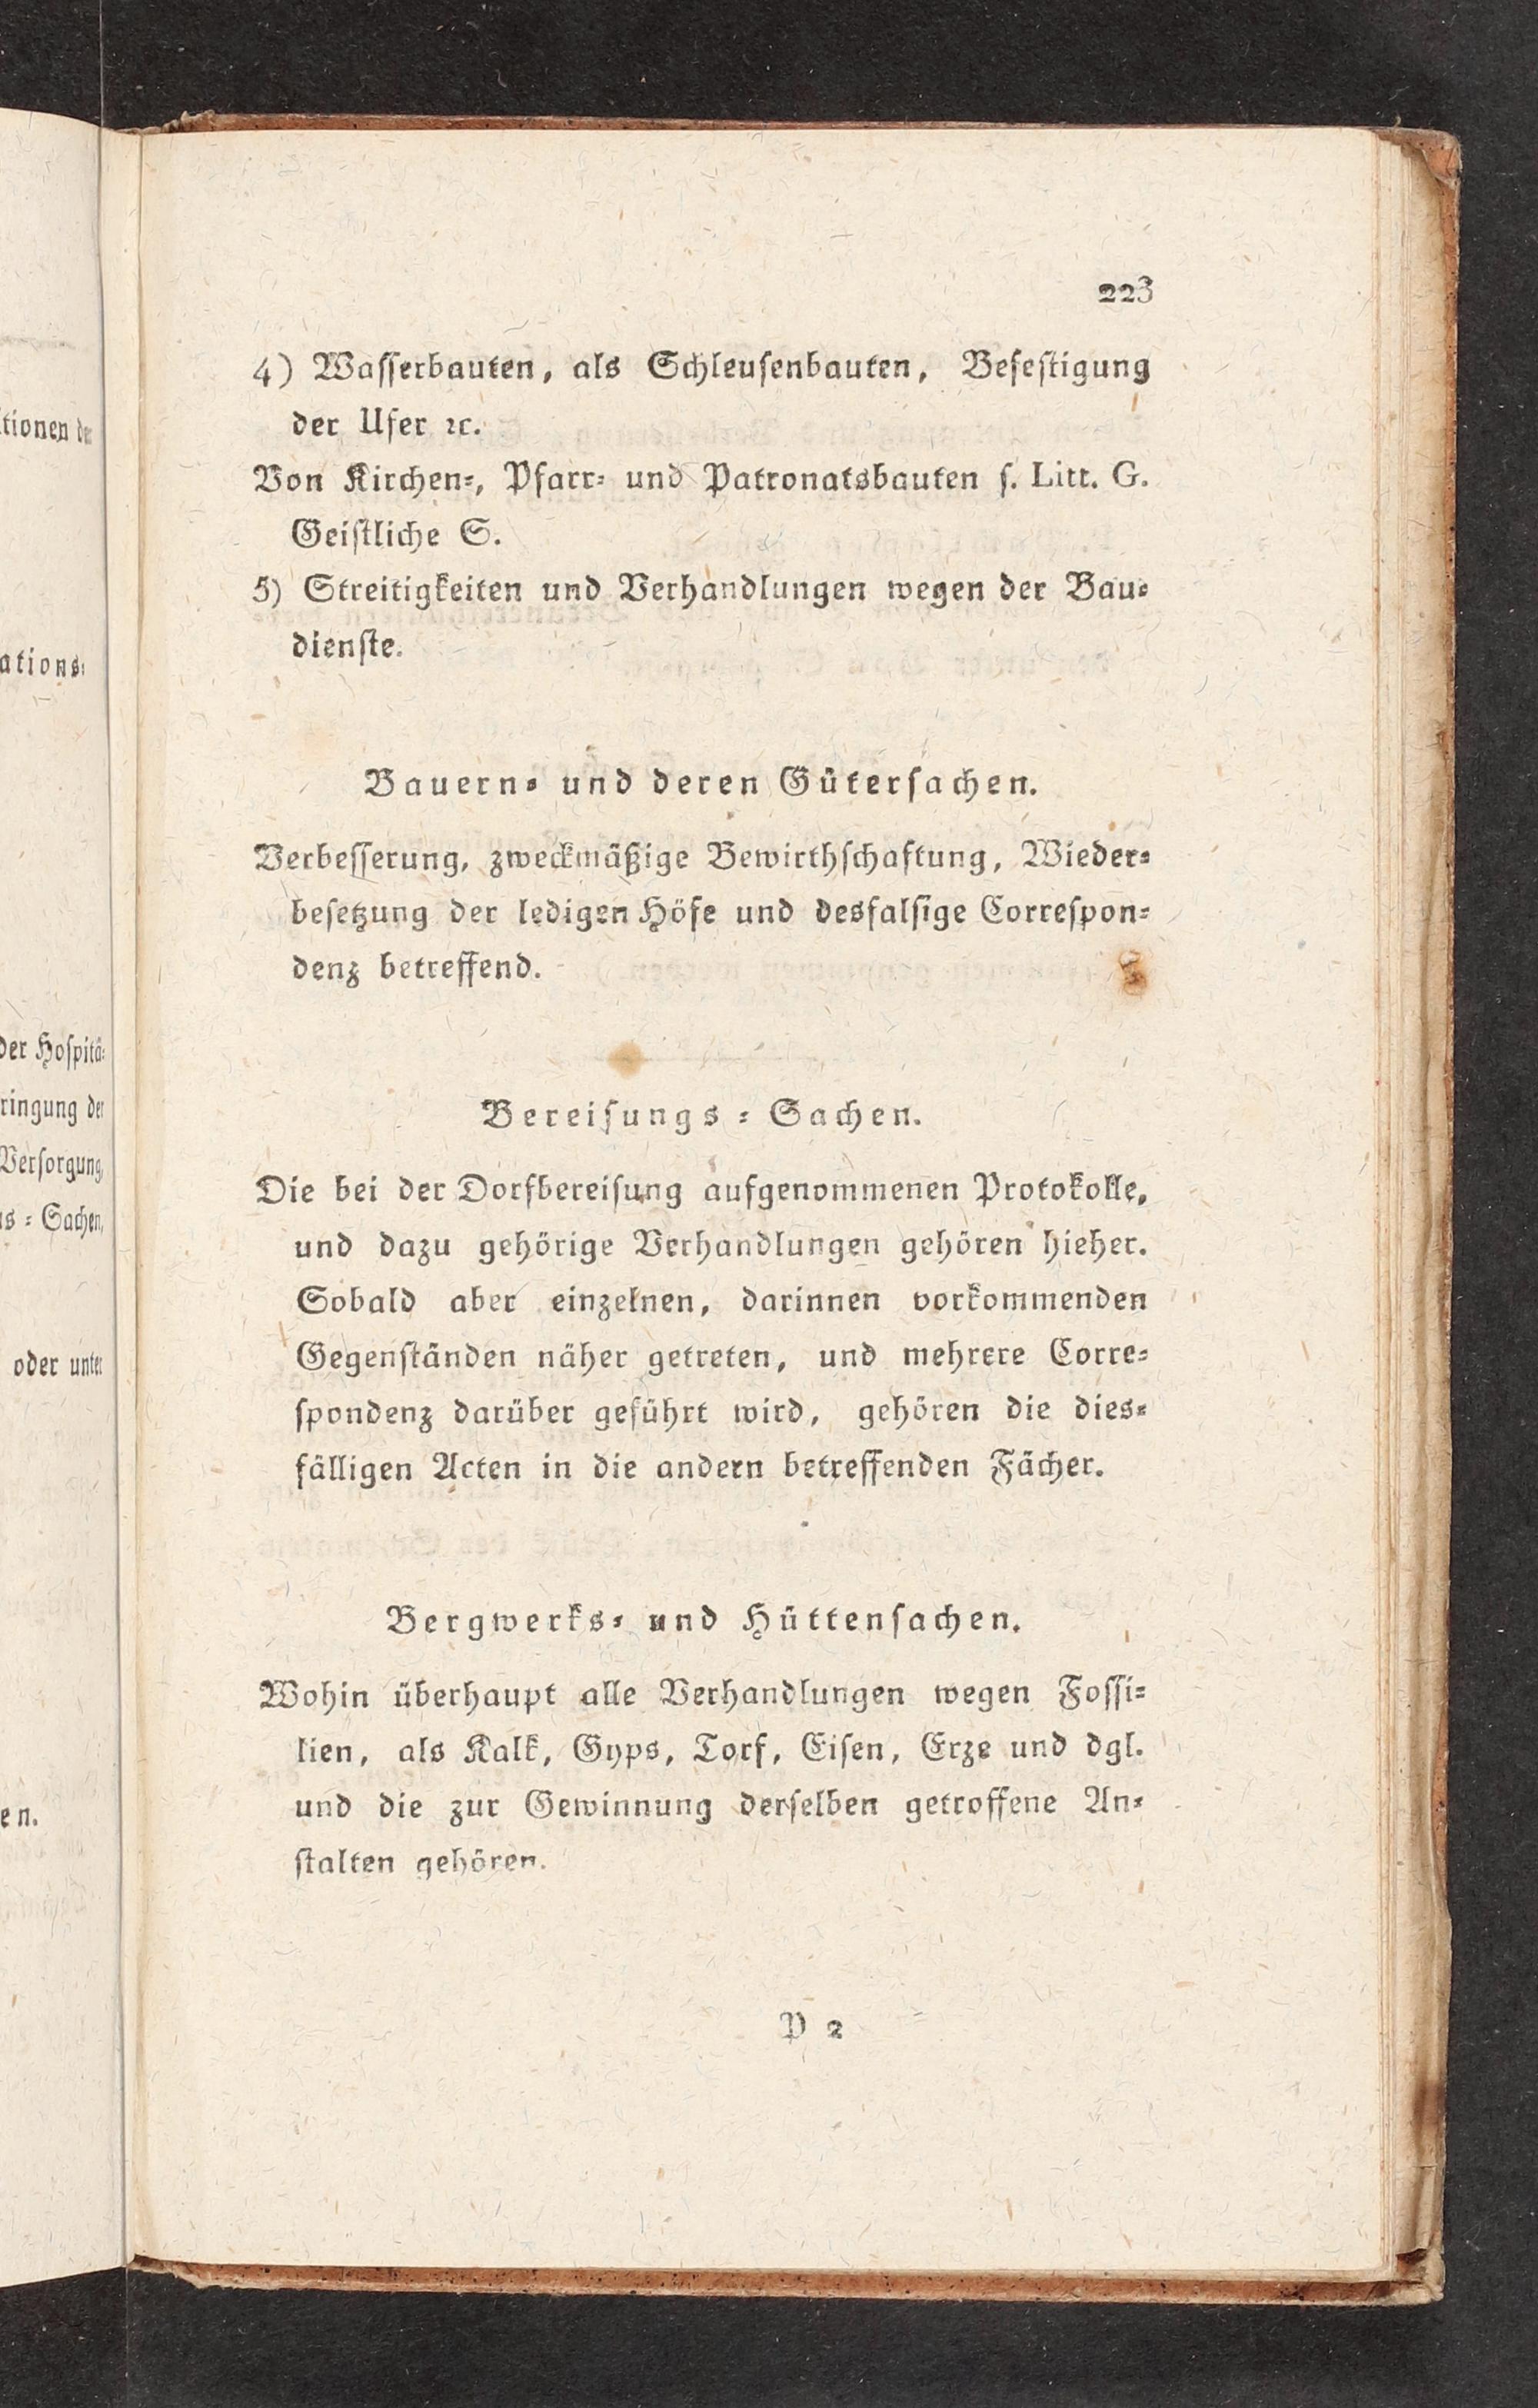 223
4) Wasserbauten, als Schleusenbauten, Befestigung
der Ufer ꝛc.
Von Kirchen-, Pfarr- und Patronatsbauten s. Litt. G.
Geistliche S.
5) Streitigkeiten und Verhandlungen wegen der Bau-
dienste.
Bauern- und deren Gütersachen.
Verbesserung, zweckmäßige Bewirthschaftung, Wieder-
besetzung der ledigen Höfe und desfalsige Correspon-
denz betreffend.
Bereisungs-Sachen.
Die bei der Dorfbereisung aufgenommenen Protokolle,
und dazu gehörige Verhandlungen gehören hieher.
Sobald aber einzelnen, darinnen vorkommenden
Gegenständen näher getreten, und mehrere Corre-
spondenz darüber geführt wird, gehören die dies-
fälligen Acten in die andern betreffenden Fächer.
Bergwerks- und Hüttensachen.
Wohin überhaupt alle Verhandlungen wegen Fossi-
lien, als Kalk, Gyps, Torf, Eisen, Erze und dgl.
und die zur Gewinnung derselben getroffene An-
stalten gehören.
P 2
der Hospitä-
Versorgung,
Sachen,
oder unter